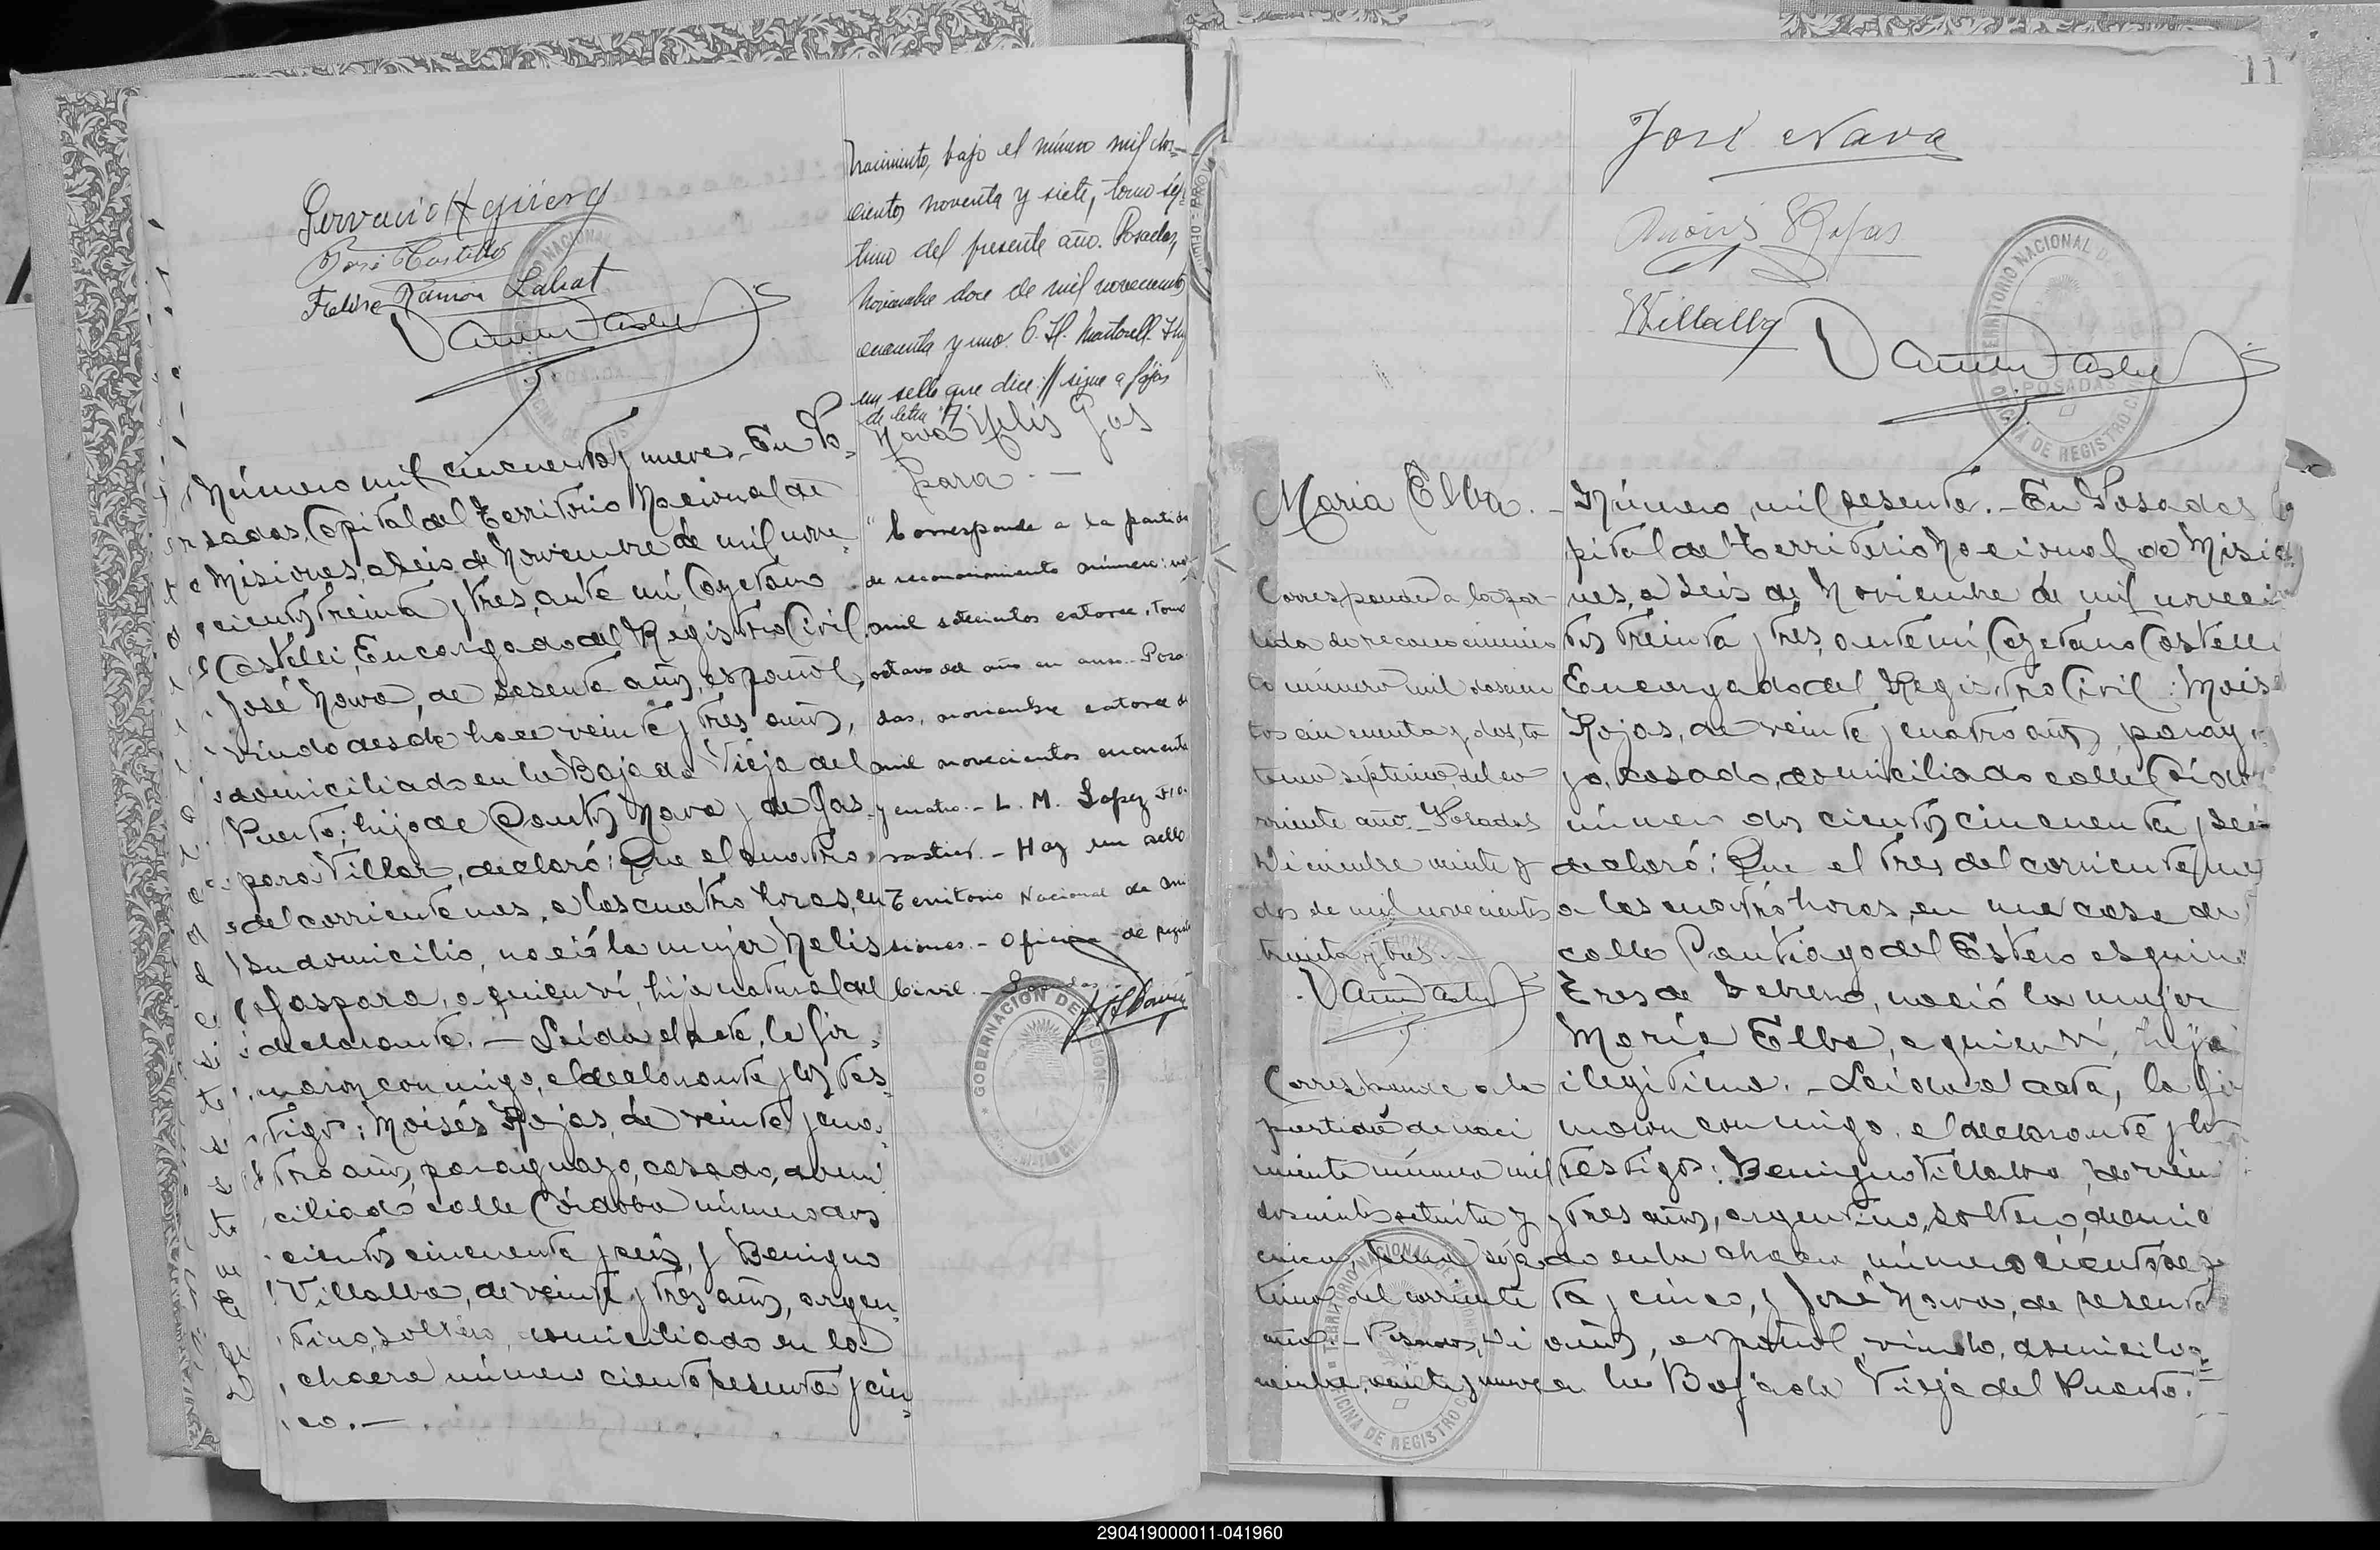 Gervacio Agüero
José Castillo
Felipe Ramón Labat
nacimiento, bajo el número mil dos-
cientos noventa y siete, tomo sép-
timo del presente año. Posadas,
Noviembre doce de mil novecientos
cuarenta y uno. C. H. Martorell. Hay
un sello que dice: // sigue a fojas
de letra "A"
Número mil cincuenta y nueve.- En Po-
sadas, Capital del Territorio Nacional de
Misiones, a seis de Noviembre de mil nove-
cientos treinta y tres, ante mí, Cayetano
Castelli, Encargado del Registro Civil,
José Nava, de sesenta años, español,
viudo desde hace veinte y tres años,
domiciliado en la Bajada Vieja del
Puerto; hijo de Santos Nava y de Gas-
para Villar, declaró: Que el cuatro
del corriente mes, a las cuatro horas, en
su domicilio, nació la mujer Nelis
Gaspara, a quien ví, hija natural del
declarante.- Leída el acta, la fir-
maron conmigo, el declarante y los tes-
tigos: Moisés Rojas, de veinte y cua-
tro años, paraguayo, casado, domi-
ciliado calle Córdoba número dos
cientos cincuenta y seis, y Benigno
Villalba, de veinte y tres años, argen-
tino, soltero, domiciliado en la
chacra número ciento sesenta y cin-
co.-
Nava Nelis Gas
para.-
"Corresponde a la partida
de reconocimiento número:
mil setecientos catorce, tomo
octavo del año en curso.- Posa-
das, noviembre catorce de
mil novecientos cuarenta
y cuatro.- L. M. Lopez
- Hay un sello
Territorio Nacional de Mi-
siones.- Oficina de Regis
Civil.- Posadas.-
GOBERNACION DE MISIONES
11
José Nava
Moisés Rojas
BVillalba
TERRITORIO NACIONAL DE
POSADAS
OFICINA DE REGISTRO CIVIL
María Elba.
Corresponde a la par-
tida de reconocimien
to número mil doscien
tos cincuenta y dos, to
tomo séptimo, del co
rriente año.- Posadas
Diciembre veinte y
dos de mil novecientos
treinta y tres.-
Corresponde a la
partida de naci
miento número mil
doscientos setenta y
cinco, tomo sép
timo del corriente
año.- Posadas, Di
ciembre, veinte y nueve
Número, mil sesenta.- En Posadas, Ca
pital del Territorio Nacional de Misio
nes, a seis de Noviembre de mil novecien
tos treinta y tres, ante mí, Cayetano Castelli
Encargado del Registro Civil: Moisés
Rojas, de veinte y cuatro años, paragua
yo, casado, domiciliado calle Córdoba
número doscientos cincuenta y seis
declaró: Que el tres del corriente mes
a las cuatro horas, en una casa de
calle Santiago del Estero esquina
Tres de Febrero, nació la mujer
María Elba, a quien ví, hija
ilegítima.- Leída el acta, la fir
maron conmigo, el declarante y los
testigos: Benigno Villalba, de vein
y tres años, argentino, soltero, domici
do en la chacra número ciento sesen
ta y cinco, y José Nava, de sesenta
años, español, viudo, domicilia
en la Bajada Vieja del Puerto.-
TERRITORIO NACIONAL DE
OFICINA DE REGISTRO CIVIL
290419000011-041960